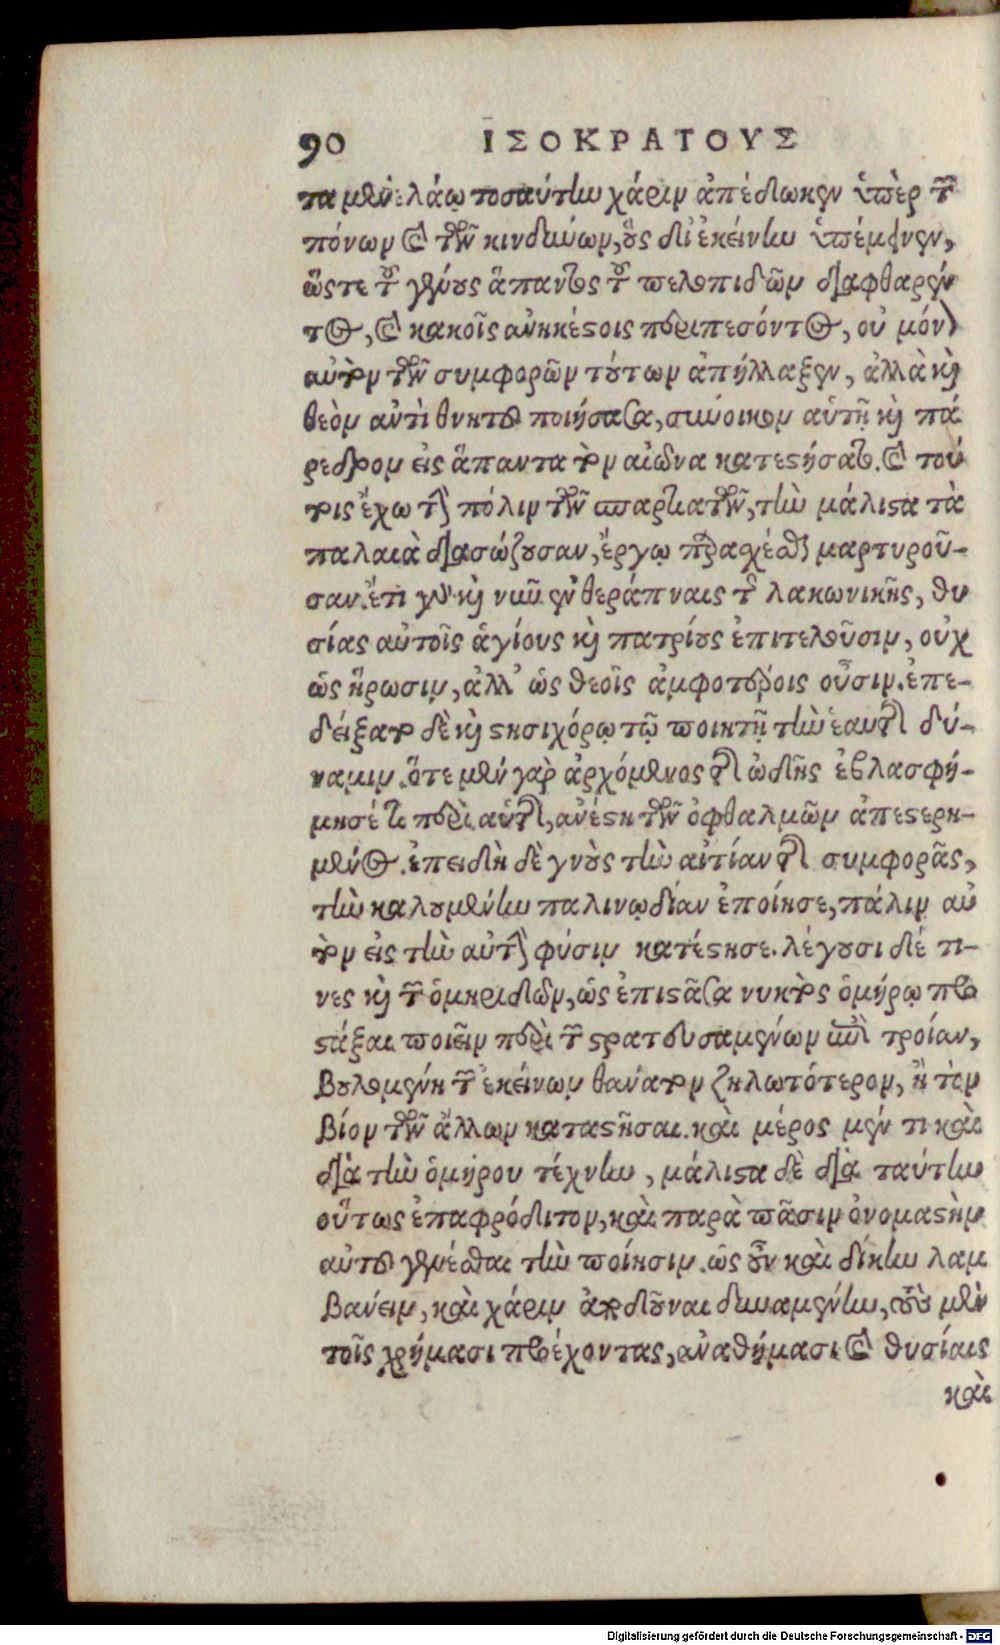 90 ΙΣΟΚΡΑΤΟΥΣ
τα μενελάῳ τοσαύτην χάριν ἀπέδωκεν ὑπὲρ τῶν
πόνων καὶ τῶν κινδύνων, οὓς δι' ἐκείνην ὑπέμεινεν,
ὥστε τοῦ γένους ἅπαντος τοῦ πελοπιδῶν διαφθαρέν
τος, καὶ κακοῖς ἀνηκέστοις περιπεσόντος, οὐ μόνον
αὐτὸν τῶν συμφορῶν τούτων ἀπήλλαξεν, ἀλλὰ καὶ
θεὸν ἀντὶ θνητοῦ ποιήσασα, σύνοικον αὑτῇ καὶ πά
ρεδρον εἰς ἅπαντα τὸν αἰῶνα κατεστήσατο. καὶ τού
τοις ἔχω τὴν πόλιν τῶν σπαρτιατῶν, τὴν μάλιστα τὰ
παλαιὰ διασώζουσαν, ἔργῳ παρασχέσθαι μαρτυροῦ-
σαν. ἔτι γὰρ καὶ νῦν ἐν θεράπναις τῆς λακωνικῆς, θυ
σίας αὐτοῖς ἁγίους καὶ πατρίους ἐπιτελοῦσιν, οὐχ
ὡς ἥρωσιν, ἀλλ' ὡς θεοῖς ἀμφοτέροις οὖσιν. ἐπε-
δείξατο δὲ καὶ στησιχόρῳ τῷ ποιητῇ τὴν ἑαυτῆς δύ-
ναμιν. ὅτε μὲν γὰρ ἀρχόμενος τῆς ὠδῆς ἐβλασφή-
μησέ τι περὶ αὐτῆς, ἀνέστη τῶν ὀφθαλμῶν ἀπεστερη-
μένος. ἐπειδὴ δὲ γνοὺς τὴν αἰτίαν τῆς συμφορᾶς,
τὴν καλουμένην παλινῳδίαν ἐποίησε, πάλιν αὐ
τὸν εἰς τὴν αὐτὴν φύσιν κατέστησε. λέγουσι δέ τι-
νες καὶ τῶν ὁμηριδῶν, ὡς ἐπιστᾶσα νυκτὸς ὁμήρῳ προ
στάξαι ποιεῖν περὶ τῶν στρατευσαμένων ἐπὶ τροίαν,
βουλομένη τὸν ἐκείνων θάνατον ζηλωτότερον, ἢ τὸν
βίον τῶν ἄλλων καταστῆσαι. καὶ μέρος μέν τι καὶ
διὰ τὴν ὁμήρου τέχνην, μάλιστα δὲ διὰ ταύτην
οὕτως ἐπαφρόδιτον, καὶ παρὰ πᾶσιν ὀνομαστὴν
αὐτοῦ γενέσθαι τὴν ποίησιν. ὡς οὖν καὶ δίκην λαμ
βάνειν, καὶ χάριν ἀποδοῦναι δυναμένην, τοὺς μὲν
τοῖς χρήμασι προέχοντας, ἀναθήμασι καὶ θυσίαις
καὶ
Digitalisierung gefördert durch die Deutsche Forschungsgemeinschaft - DFG